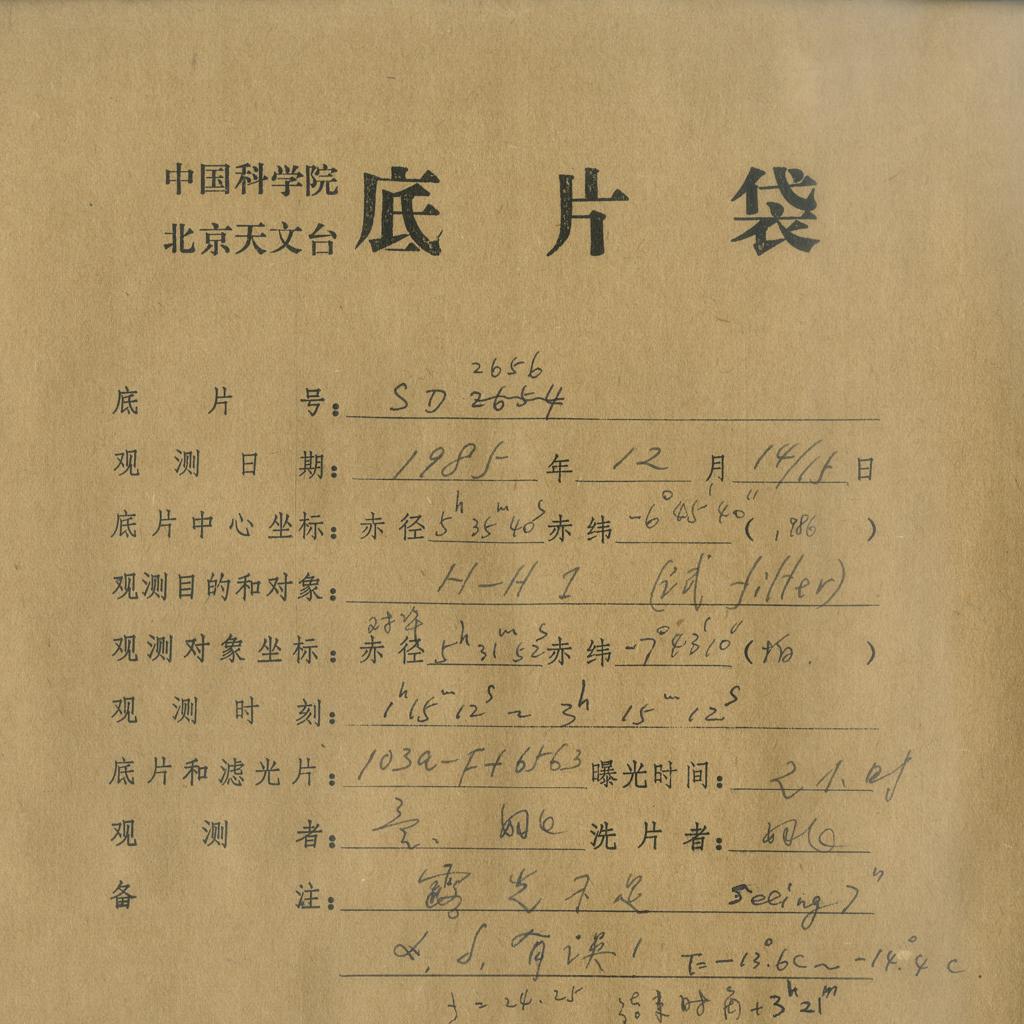 中国科学院
北京天文台 底片袋
2656
底片号: SD 2654
观测日期: 1985 年 12 月 14/15 日
底片中心坐标: 赤径 5h 35m 40s 赤纬 -6° 45' 40" ( .986 )
观测目的和对象: H-H 1 (试 filter)
对准
观测对象坐标: 赤径 5h 31m 52s 赤纬 -7° 43' 10" ( )
观测时刻: 1h 15m 12s ~ 3h 15m 12s
底片和滤光片: 103a-F+6563 曝光时间: 2小时
观测者: 洗片者:
备注: 露光不足 seeing 7"
α, δ, 有误! T=-13°.6C ~ -14°.4C
f=24.25 结束时角+3h21m